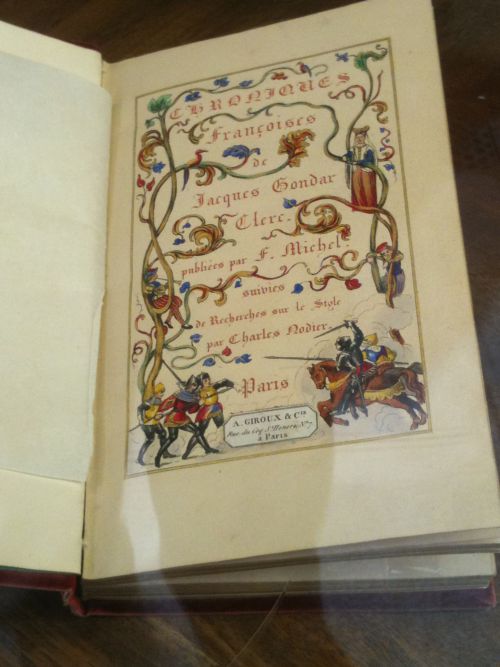 CHRONIQUES
Françoises
de
Jacques Gondar
Clerc.
publiées par F. Michel.
suivies
de Recherches sur le Style
par Charles Nodier.
Paris
A. GIROUX & Cie
Rue du Coq St Honoré, No 7
à PARIS